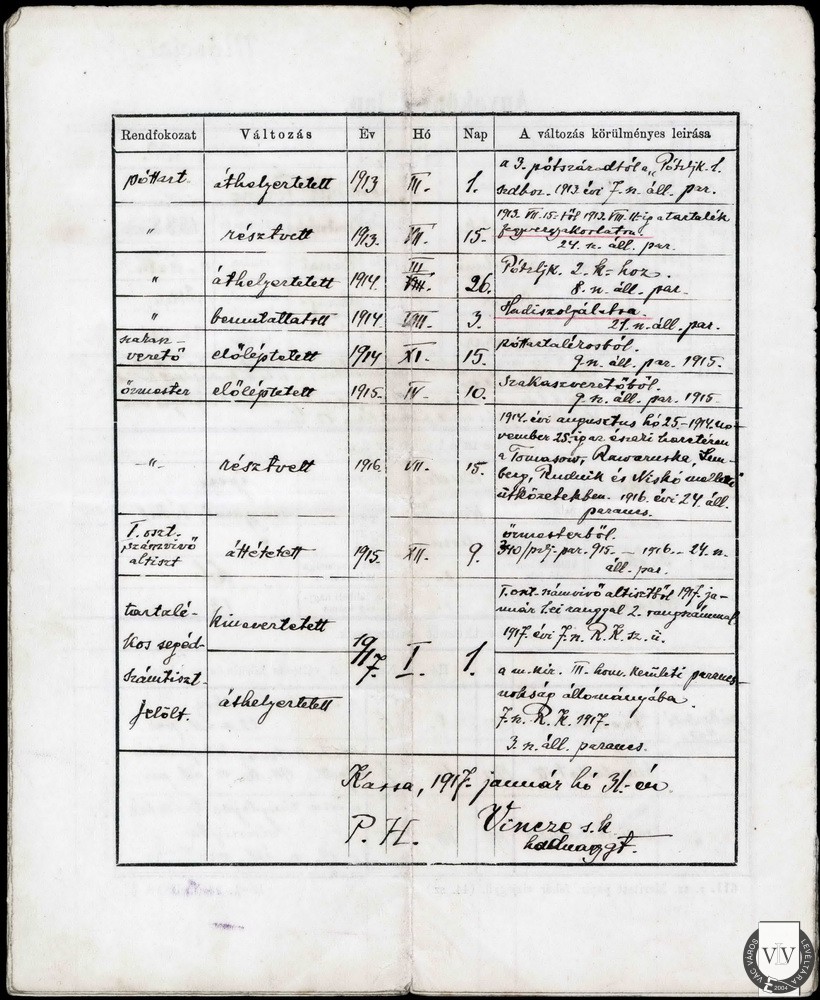 Rendfokozat Változás Év Hó Nap A változás körülményes leirása
póttart. áthelyertetett 1913 III. 1. a 3. pótszáradtól a
szdboz. 1913 évi 7. n. áll. par.
1913. VII. 15-től 1913. VIII. 11-ig a tartalék
" résztvett 1913. VII. 15. fegyvergyakorlaton.
24. n. áll. par.
" áthelyertetett 1914. III. 26. 2. k-hoz.
8. n. áll. par.
" bemutattatott 1914 VIII. 3. Hadiszolgálatra.
21. n. áll. par.
szakasz-
vezető előléptetett 1914 XI. 15. póttartalékosból.
9. n. áll. par. 1915.
őrmester előléptetett 1915. IV. 10. Szakaszvezetőből.
9. n. áll. par. 1915
1914. évi augusztus hó 25.-1914. no-
vember 25-ig az északi harctéren
-"- résztvett 1916. VII. 15. a Tomasow, Rawaruska, Lem-
berg, Rudnik és Nisko melletti
ütközetekben. 1916. évi 24. áll.
parancs.
I. oszt.
számvivő
altiszt áttétetett 1915. XII. 9. őrmesterből.
340/prlj. par. 915. - 1916. - 24. n.
áll. par.
tartalé-
kos segéd-
számtiszt-
jelölt. kineveztetett 1917. I. 1. I. oszt. számvivő altisztből 1917. ja-
nuár 1-ei ranggal 2. rangszámmal
1917. évi 7. n. R. K. sz. ü.
áthelyertetett a m. kir. III. honv. kerületi parancs-
nokság állományába.
7. n. R. K. 1917.
3. n. áll. parancs.
Kassa, 1917. január hó 31.-én
P. H. Vincze s. k.
VÁC VÁROS LEVÉLTÁRA
2004